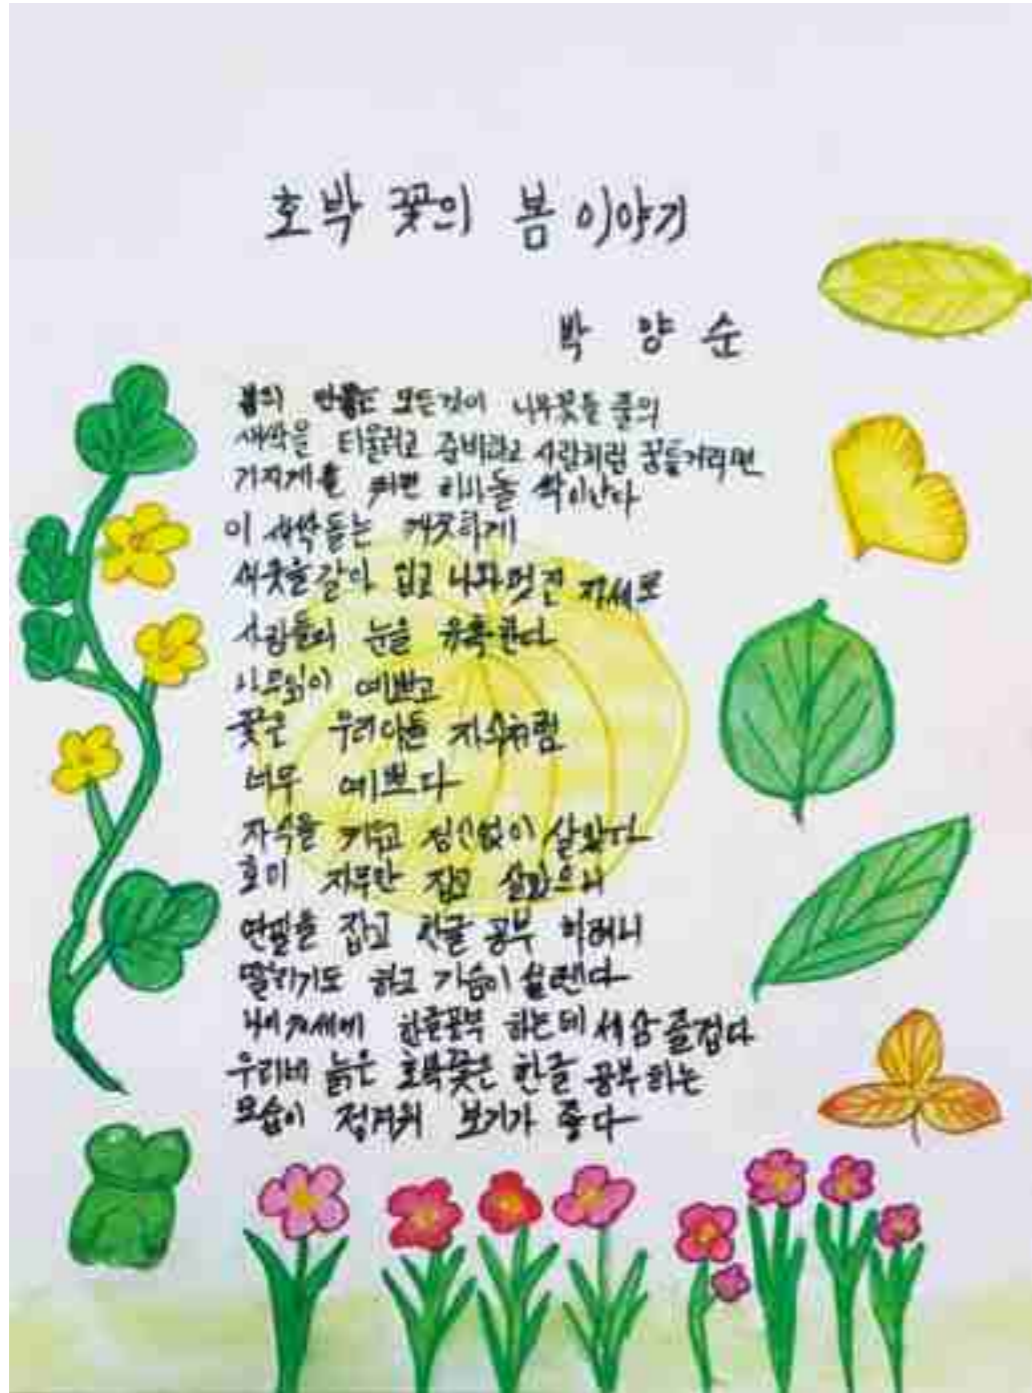 호박 꽃의 봄 이야기
박 양 순
봄의 만물은 모든것이 나무꽃들 풀의
새싹을 티울려고 준비하고 사람처럼 꿈틀거리면
기지게를 펴면 싹이난다
이 새싹들는 깨끗하게
새옷을 갈아 입고 나와 멋진 자세로
사람들의 눈을 유혹한다
나무잎이 예쁘고
꽃은 우리아들 자식처럼
너무 예쁘다
자식을 키우고 정신없이 살았다
호미 자루만 잡고 살았으니
연필을 잡고 한글 공부 하려니
떨리기도 하고 가슴이 설렌다
한글공부 하는데 세삼 즐겁다
우리네 늙은 호박꽃은 한글 공부하는
모습이 정겨워 보기가 좋다